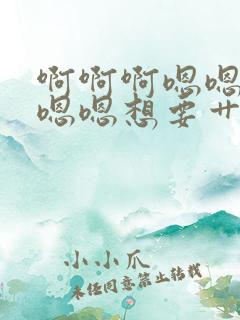 啊啊啊嗯嗯
嗯嗯想要艹
小小爪
未经同意禁止转载